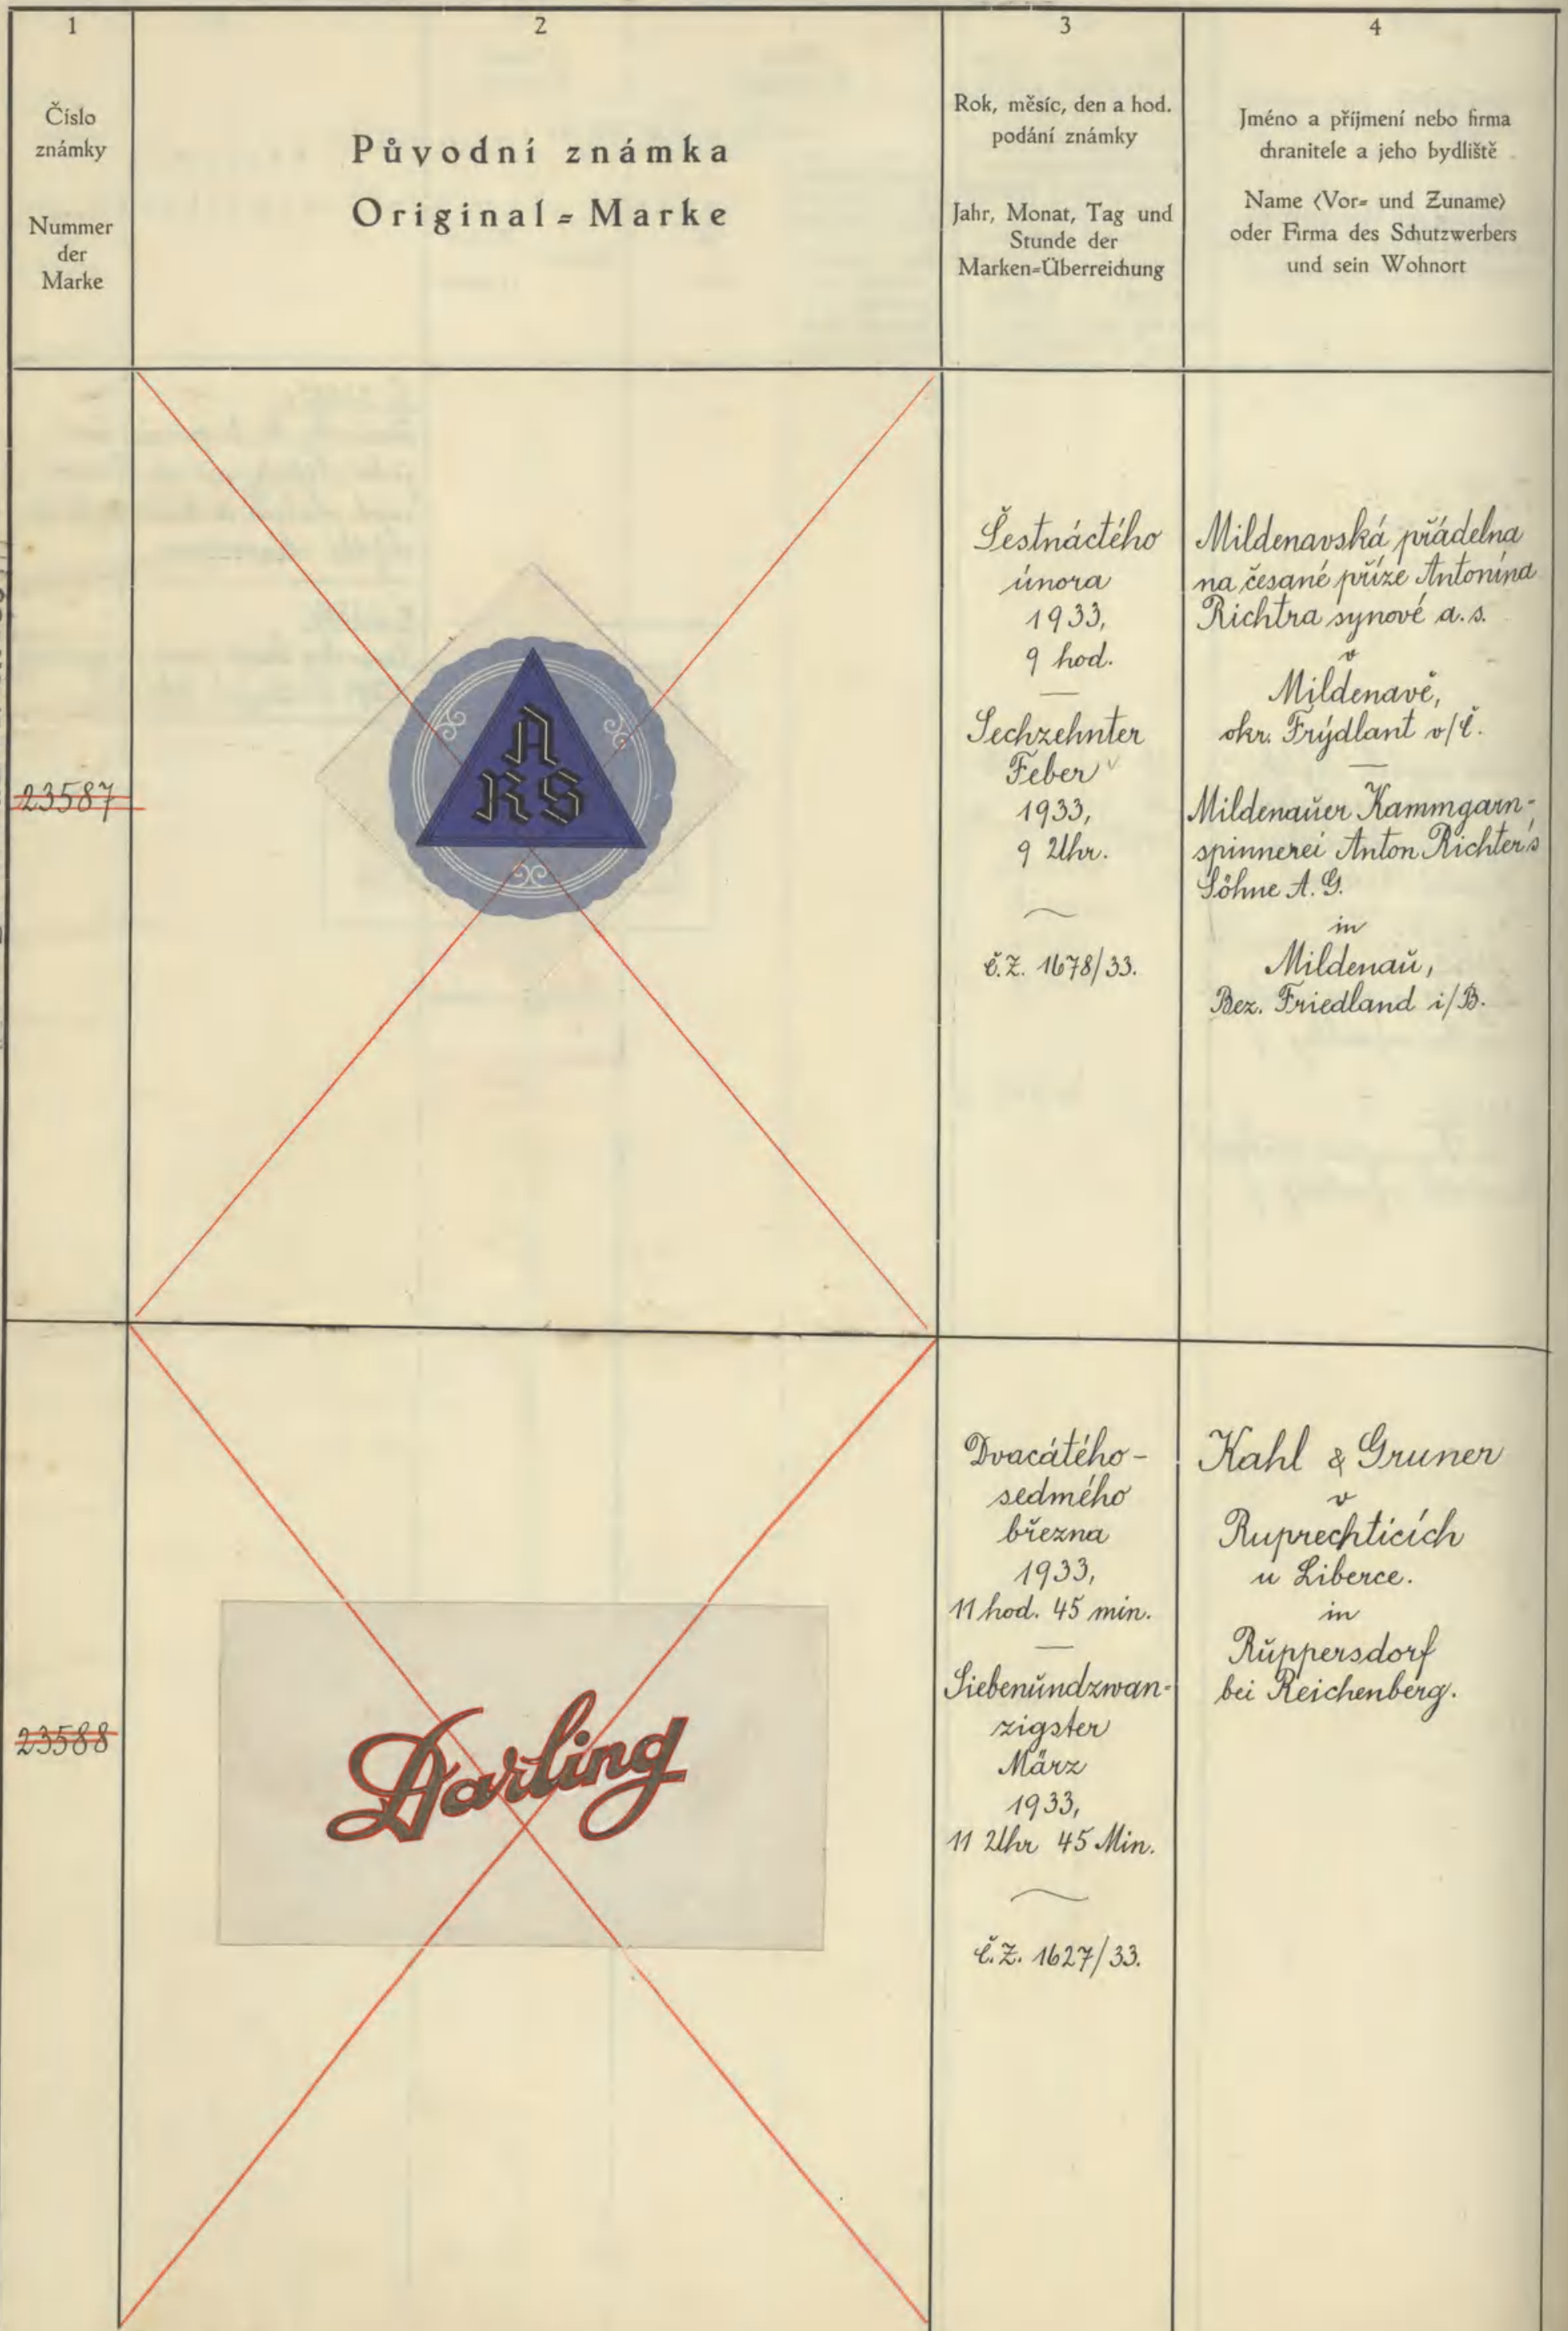 1
Číslo
známky
Nummer
der
Marke
2
Původní známka
Original=Marke
3
Rok, měsíc, den a hod.
podání známky
Jahr, Monat, Tag und
Stunde der
Marken=Überreichung
4
Jméno a příjmení nebo firma
chranitele a jeho bydliště
Name (Vor= und Zuname)
oder Firma des Schutzwerbers
und sein Wohnort
23587
A
RS
Šestnáctého
února
1933,
9 hod.
Sechzehnter
Feber
1933,
9 Uhr.
č.Z. 1678/33.
Mildenavská přádelna
na česané příze Antonína
Richtra synové a.s.
v
Mildenavě,
okr. Frýdlant v/Č.
Mildenauer Kammgarn-
spinnerei Anton Richter's
Söhne A.G.
in
Mildenau,
Bez. Friedland i/B.
23588
Darling
Dvacátého-
sedmého
března
1933,
11 hod. 45 min.
Siebenundzwan-
zigster
März
1933,
11 Uhr 45 Min.
č.Z. 1627/33.
Kahl & Gruner
v
Ruprechticích
u Liberce.
in
Ruppersdorf
bei Reichenberg.